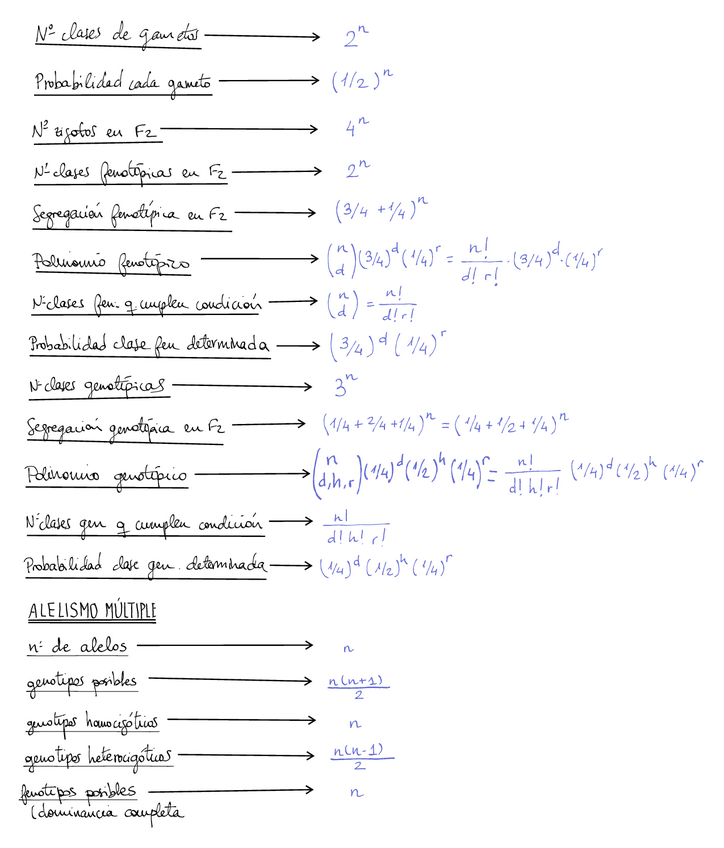 Nº clases de gametos → 2^n
Probabilidad cada gameto → (1/2)^n
Nº zigotos en F2 → 4^n
Nº clases fenotípicas en F2 → 2^n
Segregación fenotípica en F2 → (3/4 + 1/4)^n
Polinomio fenotípico → (n d) (3/4)^d (1/4)^r = n!/(d! r!) · (3/4)^d · (1/4)^r
Nº clases fen. q cumplen condición → (n d) = n!/(d! r!)
Probabilidad clase fen determinada → (3/4)^d (1/4)^r
Nº clases genotípicas → 3^n
Segregación genotípica en F2 → (1/4 + 2/4 + 1/4)^n = (1/4 + 1/2 + 1/4)^n
Polinomio genotípico → (n d,h,r) (1/4)^d (1/2)^h (1/4)^r = n!/(d! h! r!) (1/4)^d (1/2)^h (1/4)^r
Nº clases gen q cumplen condición → n!/(d! h! r!)
Probabilidad clase gen. determinada → (1/4)^d (1/2)^h (1/4)^r
ALELISMO MÚLTIPLE
nº de alelos → n
genotipos posibles → n(n+1)/2
genotipos homocigóticos → n
genotipos heterocigóticos → n(n-1)/2
fenotipos posibles → n
(dominancia completa